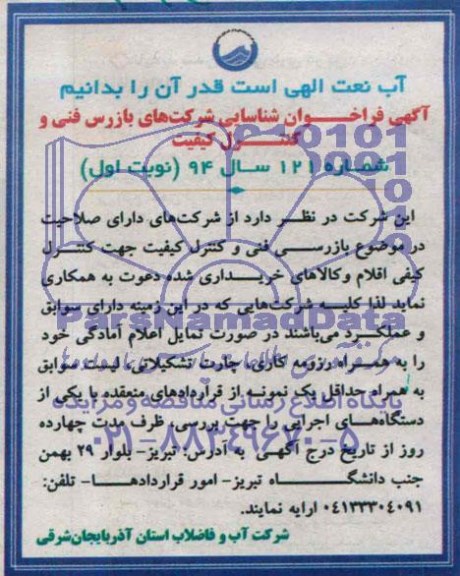 آب نعت الهی است قدر آن را بدانیم
آگهی فراخوان شناسایی شرکت‌های بازرس فنی و
کنترل کیفیت
شماره ۱۲۱ سال ۹۴ (نوبت اول)
این شرکت در نظر دارد از شرکت‌های دارای صلاحیت
در موضوع بازرسی فنی و کنترل کیفیت جهت کنترل
کیفی اقلام و کالاهای خریداری شده دعوت به همکاری
نماید لذا کلیه شرکت‌هایی که در این زمینه دارای سوابق
و عملکرد می‌باشند در صورت تمایل اعلام آمادگی خود
را به همراه رزومه کاری، چارت تشکیلاتی، لیست سوابق
به همراه حداقل یک نمونه از قراردادهای منعقده با یکی از
دستگاه‌های اجرایی را جهت بررسی، ظرف مدت چهارده
روز از تاریخ درج آگهی به آدرس: تبریز- بلوار ۲۹ بهمن
جنب دانشگاه تبریز- امور قراردادها- تلفن:
۰۴۱۳۳۳۰۴۰۹۱ ارایه نمایند.
شرکت آب و فاضلاب استان آذربایجان‌شرقی
ParsNamadData
پایگاه اطلاع رسانی مناقصه و مزایده
۰۲۱-۸۸۳۴۹۶۷۰-۵